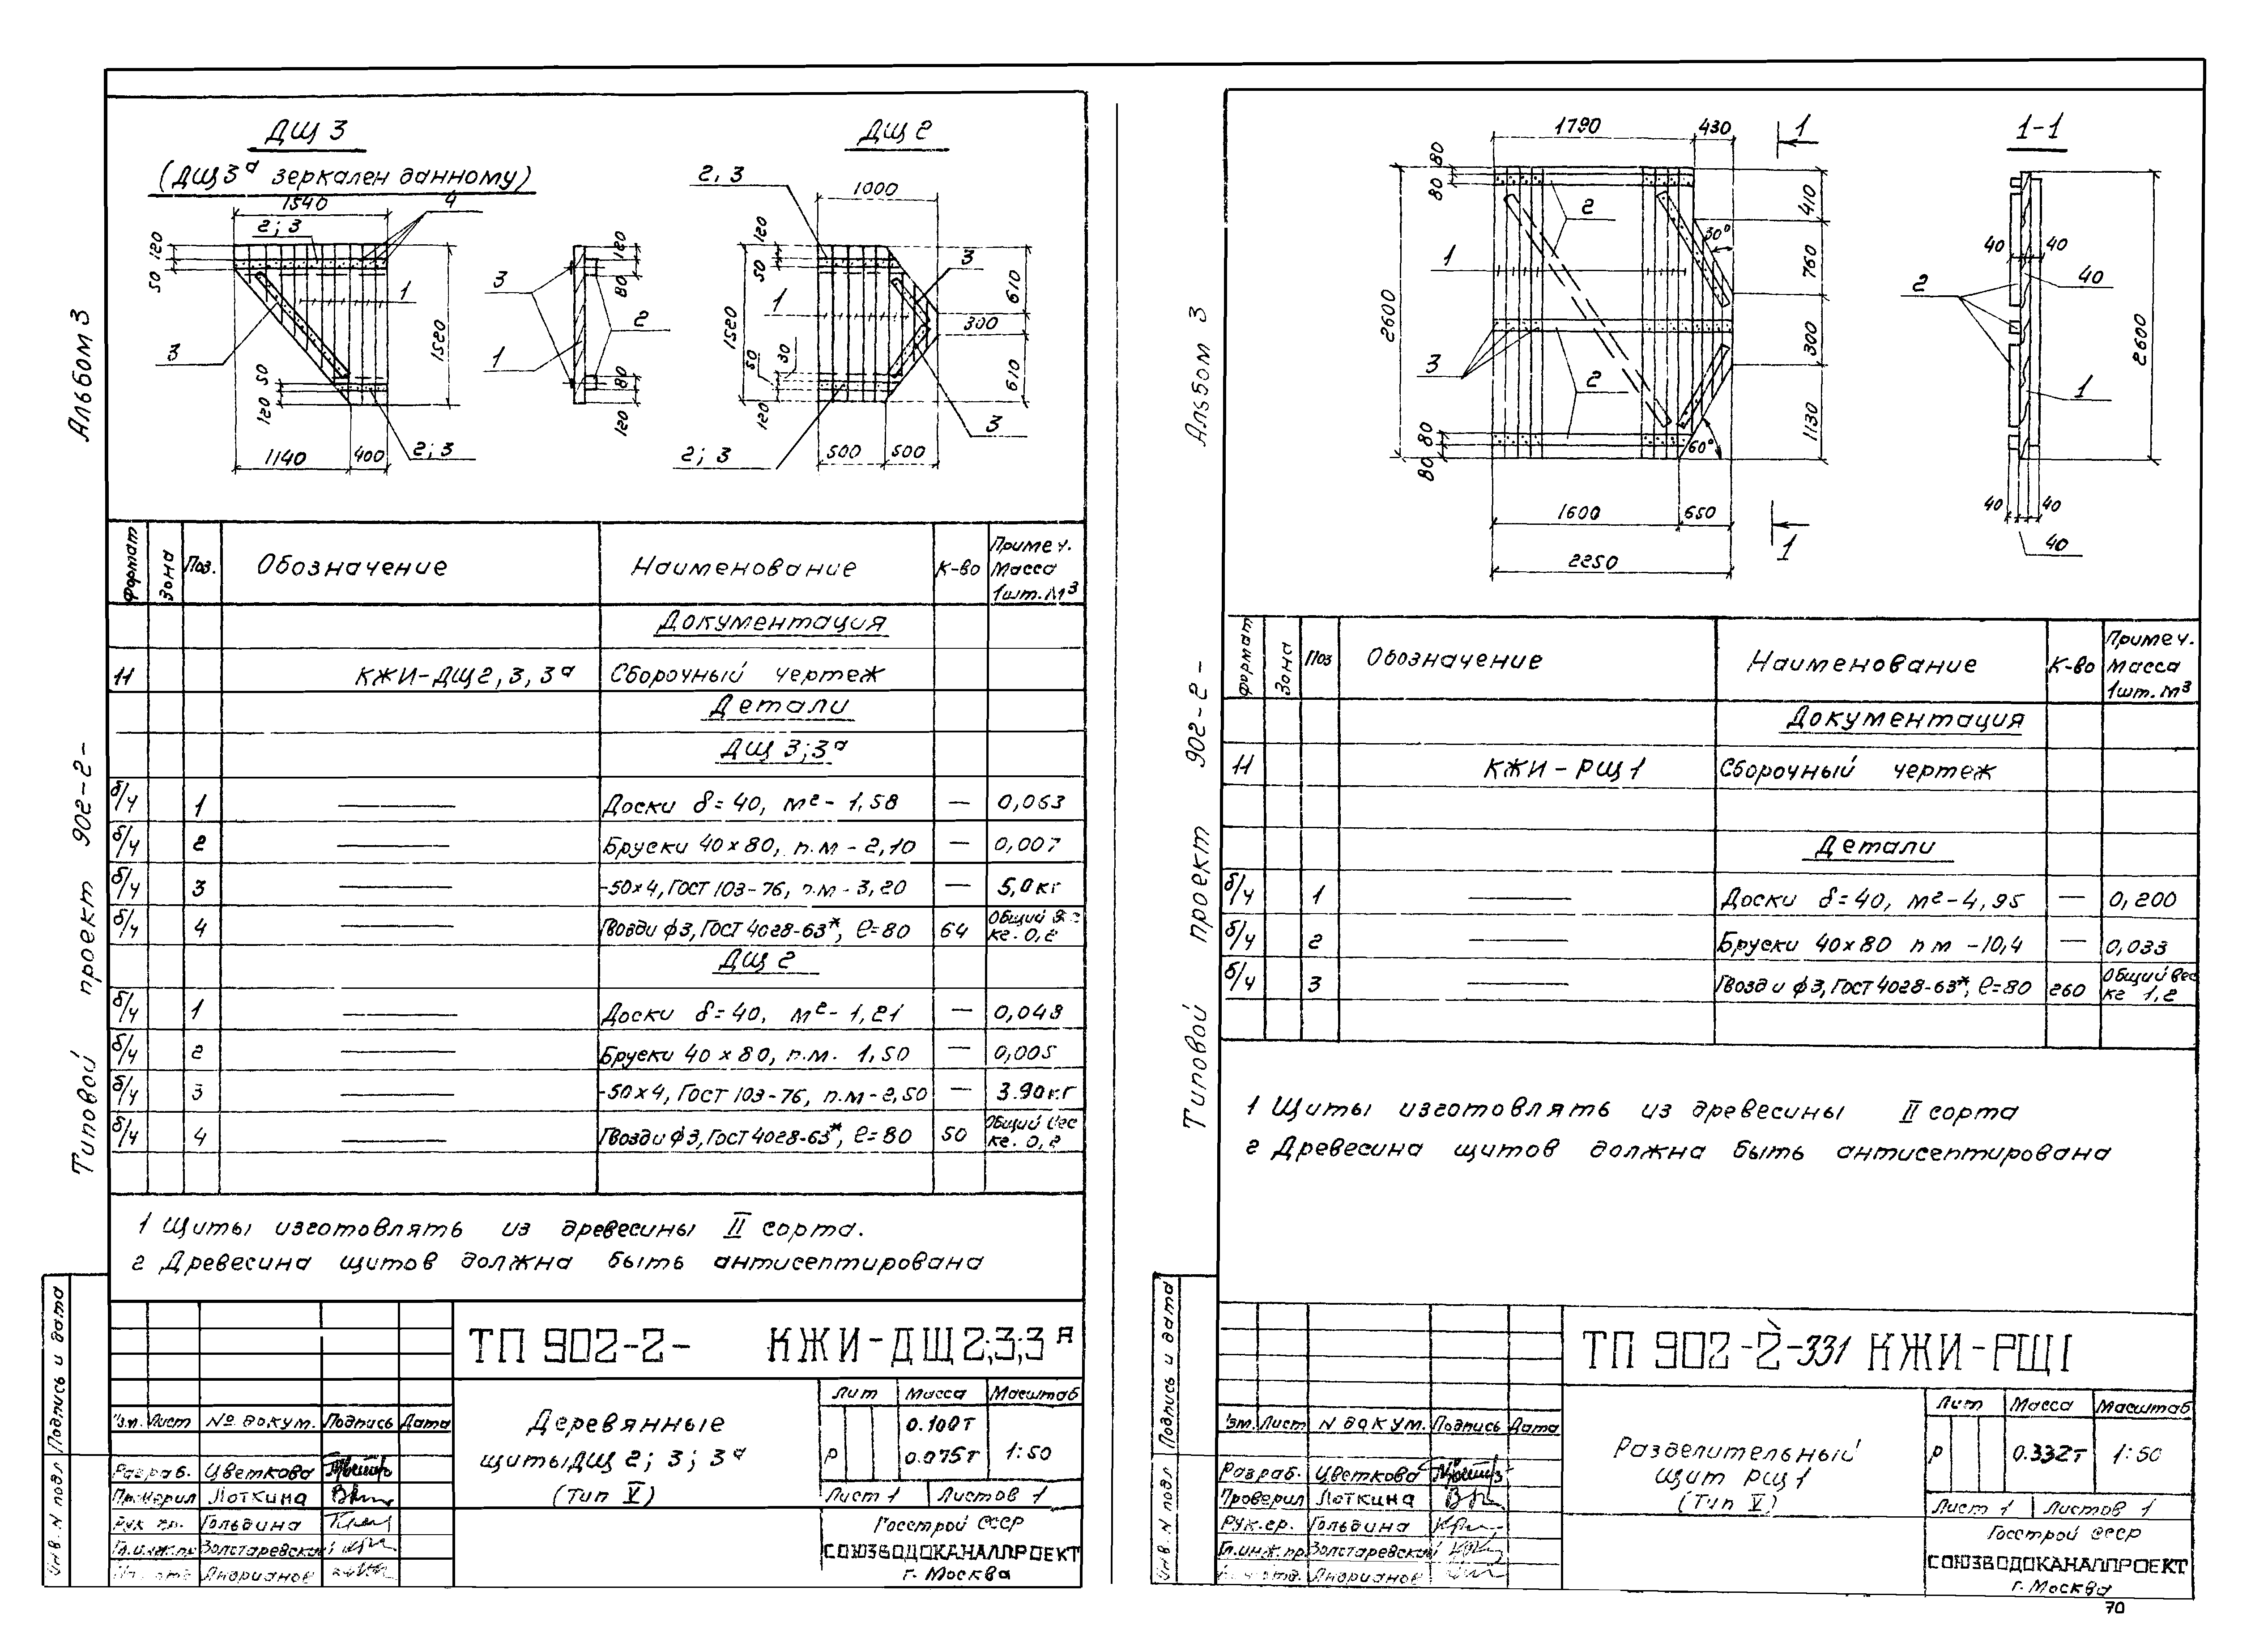 Альбом 3
Типовой проект 902-2-
ДЩ 3
(ДЩ3а зеркален данному)
1540
2; 3
4
120
50
1
3
1520
50
120
1140
400
2; 3
3
120
80
2
1
80
120
ДЩ 2
2, 3
1000
120
50
3
1
610
300
1520
50
30
610
120
3
500
500
2; 3
Формат
Зона
Поз.
Обозначение
Наименование
К-во
Примеч. Масса 1шт. М3
Документация
11 КЖИ-ДЩ2, 3, 3а Сборочный чертеж
Детали
ДЩ 3; 3а
б/ч 1 Доски δ=40, м2- 1,58 — 0,063
б/ч 2 Бруски 40х80, п.м - 2,10 — 0,007
б/ч 3 -50х4, Гост 103-76, п.м - 3,20 — 5,0кг
б/ч 4 Гвозди ф3, Гост 4028-63*, ℓ=80 64 Общий кг. 0,2
ДЩ 2
б/ч 1 Доски δ=40, м2- 1,21 — 0,048
б/ч 2 Бруски 40 х 80, п.м. 1,50 — 0,005
б/ч 3 -50х4, Гост 103-76, п.м-2,50 — 3.90кг
б/ч 4 Гвозди ф3, Гост 4028-63*, ℓ=80 50 Общий вес кг. 0,2
1 Щиты изготовлять из древесины II сорта.
2 Древесина щитов должна быть антисептирована
Инв. N подл
Подпись и дата
ТП 902-2- КЖИ-ДЩ2;3;3а
Изм. Лист № докум. Подпись Дата
Разраб. Цветкова
Проверил Лоткина
Рук гр. Гольдина
Гл.инж.пр Золстаревский
Андрианов
Деревянные
щиты ДЩ 2; 3; 3а
(Тип V)
Лит Масса Масштаб
Р 0.100т 0.075т 1:50
Лист 1 Листов 1
Госстрой СССР
СОЮЗВОДОКАНАЛПРОЕКТ
г. Москва
Альбом 3
Типовой проект 902-2-
1790
430
1
80
80
2
410
30°
1
760
2600
3
300
2
80
80
60°
1130
1600
650
1
2250
1-1
40
40
40
2
2600
1
40
40
40
Формат
Зона
Поз
Обозначение
Наименование
К-во
Примеч. Масса 1шт. м3
Документация
11 КЖИ-РЩ1 Сборочный чертеж
Детали
б/ч 1 Доски δ=40, м2-4,95 — 0,200
б/ч 2 Бруски 40х80 п м -10,4 — 0,033
б/ч 3 Гвозди ф3, Гост 4028-63*, ℓ=80 260 Общий вес кг 1,2
1 Щиты изготовлять из древесины II сорта
2 Древесина щитов должна быть антисептирована
Инв. N подл
Подпись и дата
ТП 902-2-331 КЖИ-РЩ1
Изм. Лист N докум. Подпись Дата
Разраб. Цветкова
Проверил Лоткина
Рук.гр. Гольдина
Гл.инж.пр Золстаревский
Андрианов
Разделительный
щит РЩ1
(Тип V)
Лит Масса Масштаб
Р 0.332т 1:50
Лист 1 Листов 1
Госстрой СССР
СОЮЗВОДОКАНАЛПРОЕКТ
г. Москва
70